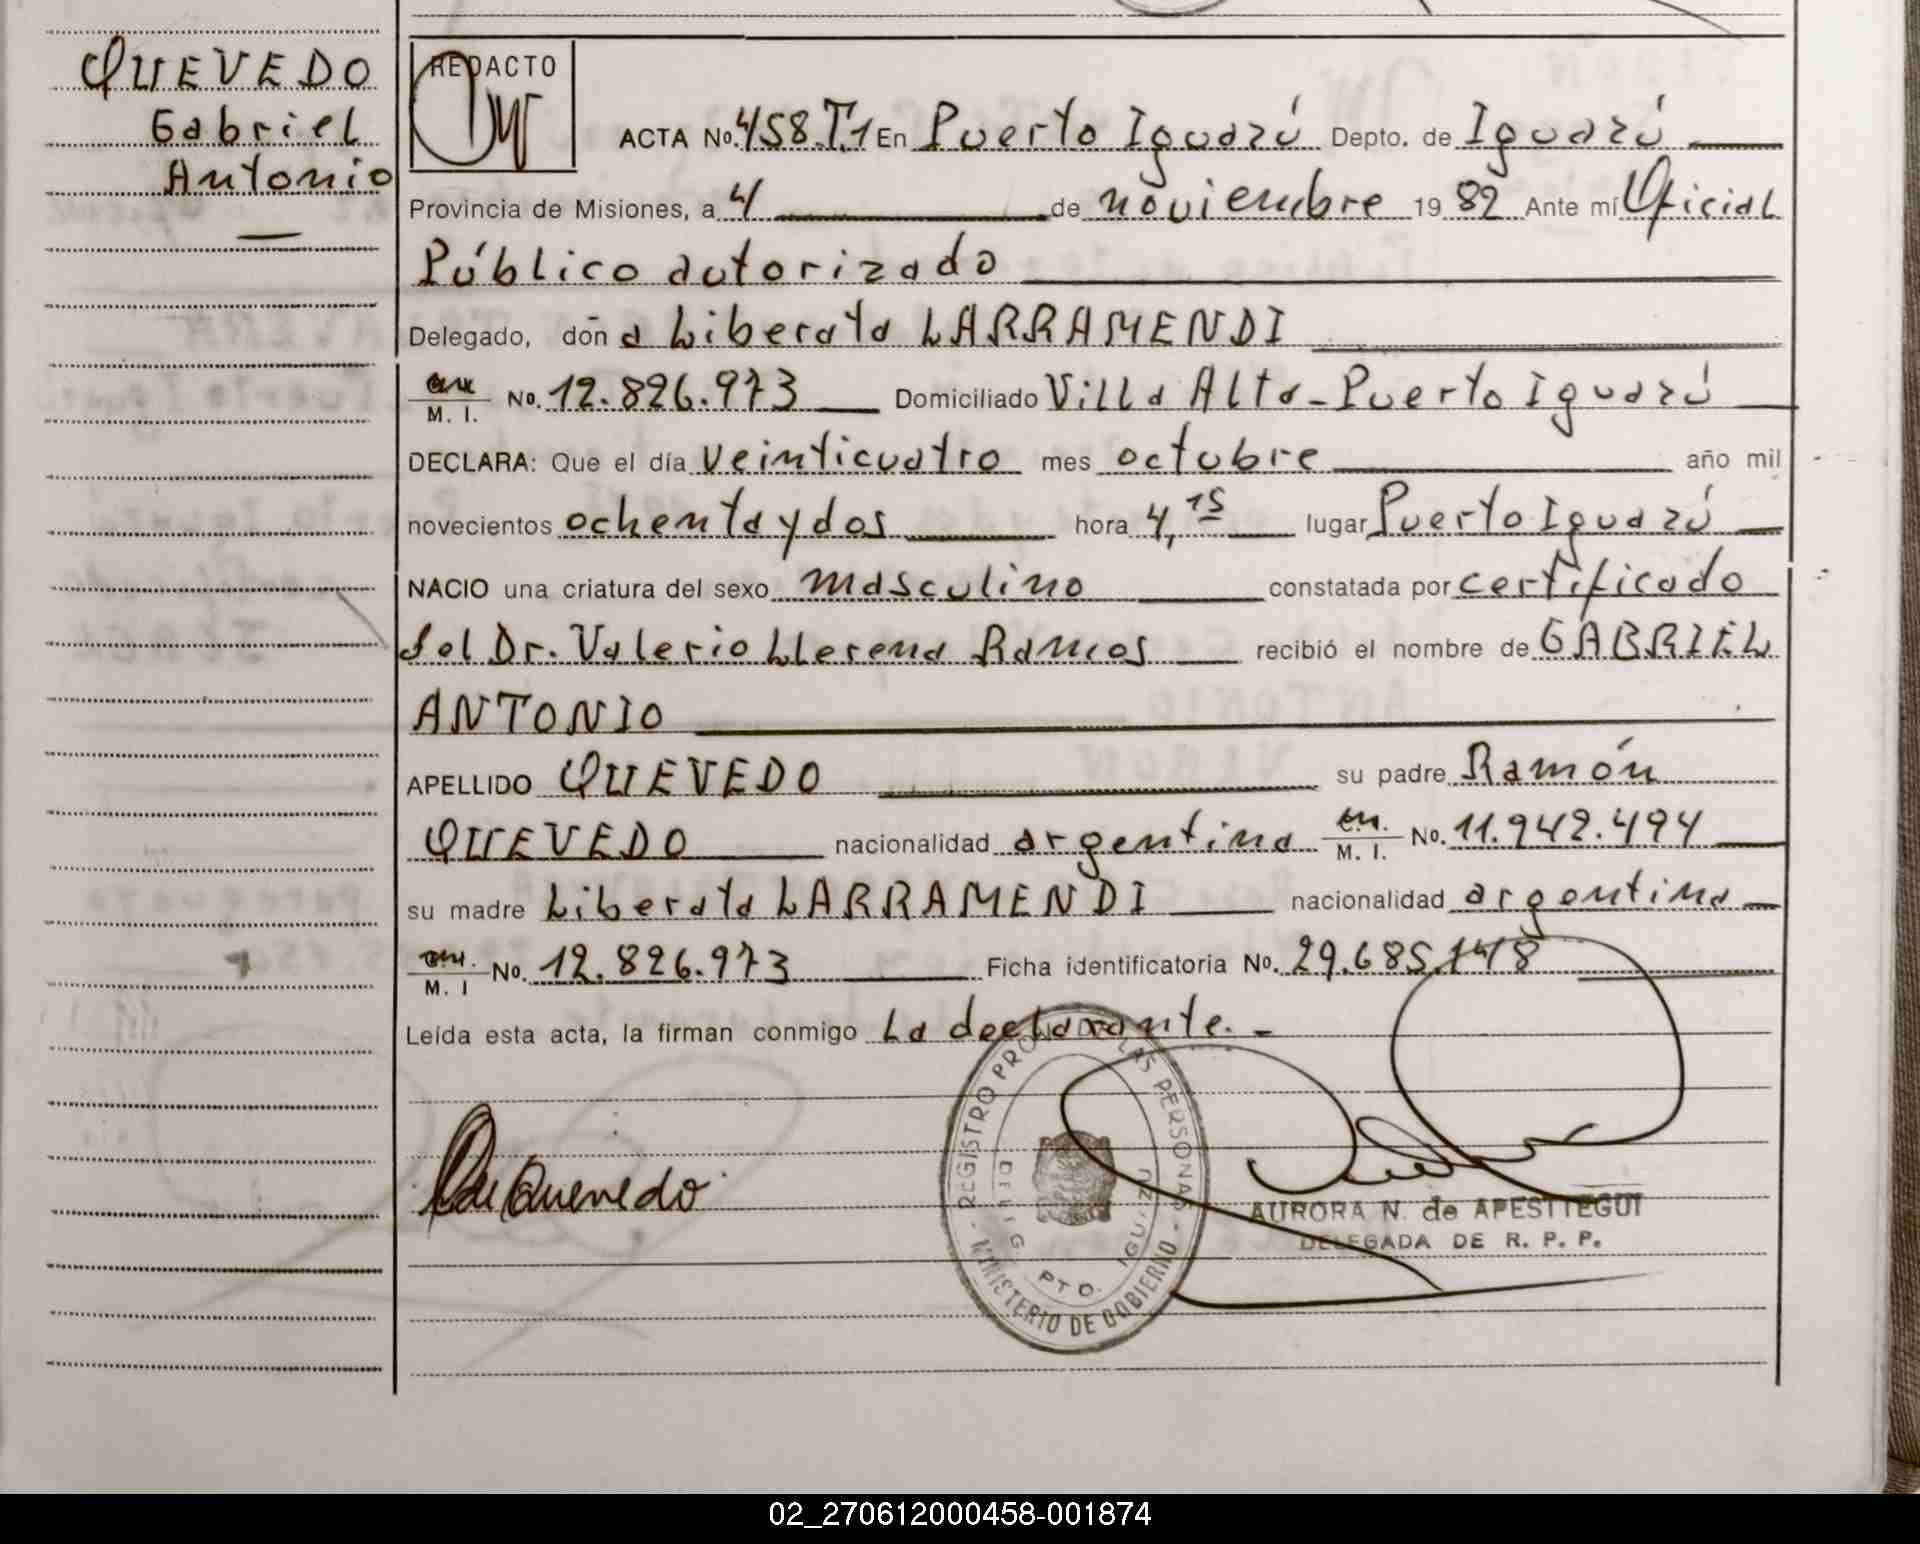 QUEVEDO
Gabriel
Antonio
REDACTO
ACTA No. 458.T.1 En Puerto Iguazú Depto. de Iguazú
Provincia de Misiones, a 4 de noviembre 19 82 Ante mí Oficial
Público autorizado
Delegado, doña Liberata LARRAMENDI
M. I. No. 12.826.973 Domiciliado Villa Alta - Puerto Iguazú
DECLARA: Que el día veinticuatro mes octubre año mil
novecientos ochenta y dos hora 4,15 lugar Puerto Iguazú
NACIO una criatura del sexo masculino constatada por certificado
del Dr. Valerio Llerena Ramos recibió el nombre de GABRIEL
ANTONIO
APELLIDO QUEVEDO su padre Ramón
QUEVEDO nacionalidad argentina M. I. No. 11.942.494
su madre Liberata LARRAMENDI nacionalidad argentina
M. I No. 12.826.973 Ficha identificatoria No. 29.685.148
Leída esta acta, la firman conmigo La declarante. -
REGISTRO PRO LAS PERSONAS
DELEG. PTO. IGUAZU
MINISTERIO DE GOBIERNO
Quevedo
AURORA N. de APESTTEGUI
DELEGADA DE R. P. P.
02_270612000458-001874